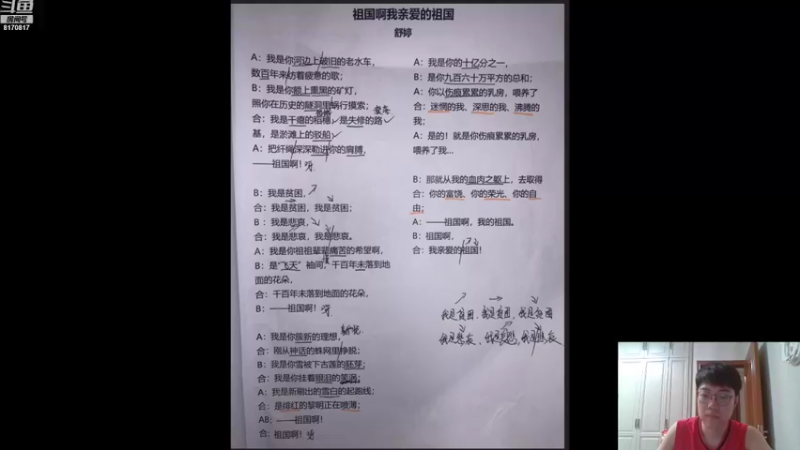 斗鱼
房间号
8170817
祖国啊我亲爱的祖国
舒婷
A：我是你河边上破旧的老水车，
数百年来纺着疲惫的歌；
B：我是你额上熏黑的矿灯，
照你在历史的隧洞里蜗行摸索；
合：我是干瘪的稻穗，是失修的路
基，是淤滩上的驳船；
A：把纤绳深深勒进你的肩膊，
——祖国啊！
B：我是贫困，
合：我是贫困，我是贫困；
B：我是悲哀，
合：我是悲哀，我是悲哀。
A：我是你祖祖辈辈痛苦的希望啊，
B：是“飞天”袖间，千百年未落到地
面的花朵，
合：千百年未落到地面的花朵，
B：——祖国啊！
A：我是你簇新的理想，
合：刚从神话的蛛网里挣脱；
B：我是你雪被下古莲的胚芽；
合：我是你挂着眼泪的笑涡；
A：我是新刷出的雪白的起跑线；
合：是绯红的黎明正在喷薄；
AB：——祖国啊！
合：祖国啊！
A：我是你的十亿分之一，
B：是你九百六十万平方的总和；
A：你以伤痕累累的乳房，喂养了
合：迷惘的我、深思的我、沸腾的
我；
A：是的！就是你伤痕累累的乳房，
喂养了我...
B：那就从我的血肉之躯上，去取得
合：你的富饶、你的荣光、你的自
由；
A：——祖国啊，我的祖国。
B：祖国啊，
合：我亲爱的祖国！
我是贫困，我是贫困，我是贫困